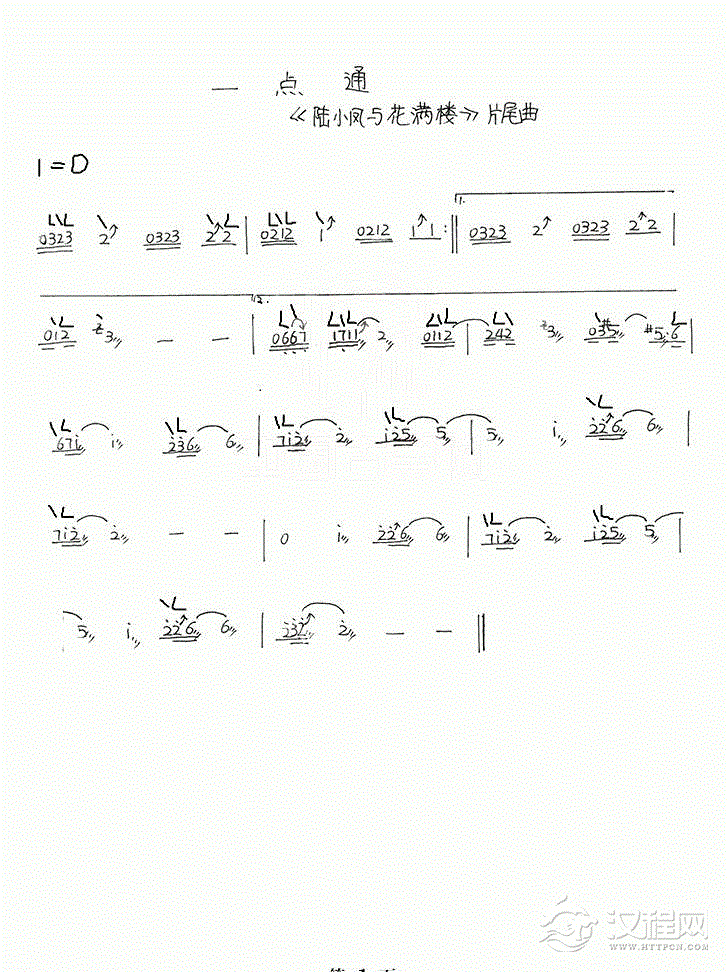 一 点 通
《陆小凤与花满楼》片尾曲
1=D
0323 2 0323 2 2 | 0212 1 0212 1 1 :|| 1. 0323 2 0323 2 2 |
012 3 — — | 2. 0667 1711 2 0112 | 242 3 035 #5 6 |
67i i 236 6 | 7i2 2 i25 5 | 5 i 226 6 |
7i2 2 — — | 0 i 226 6 | 7i2 2 i25 5 |
5 i 226 6 | 232 2 — — ||
汉程网
WWW.HTTPCN.COM